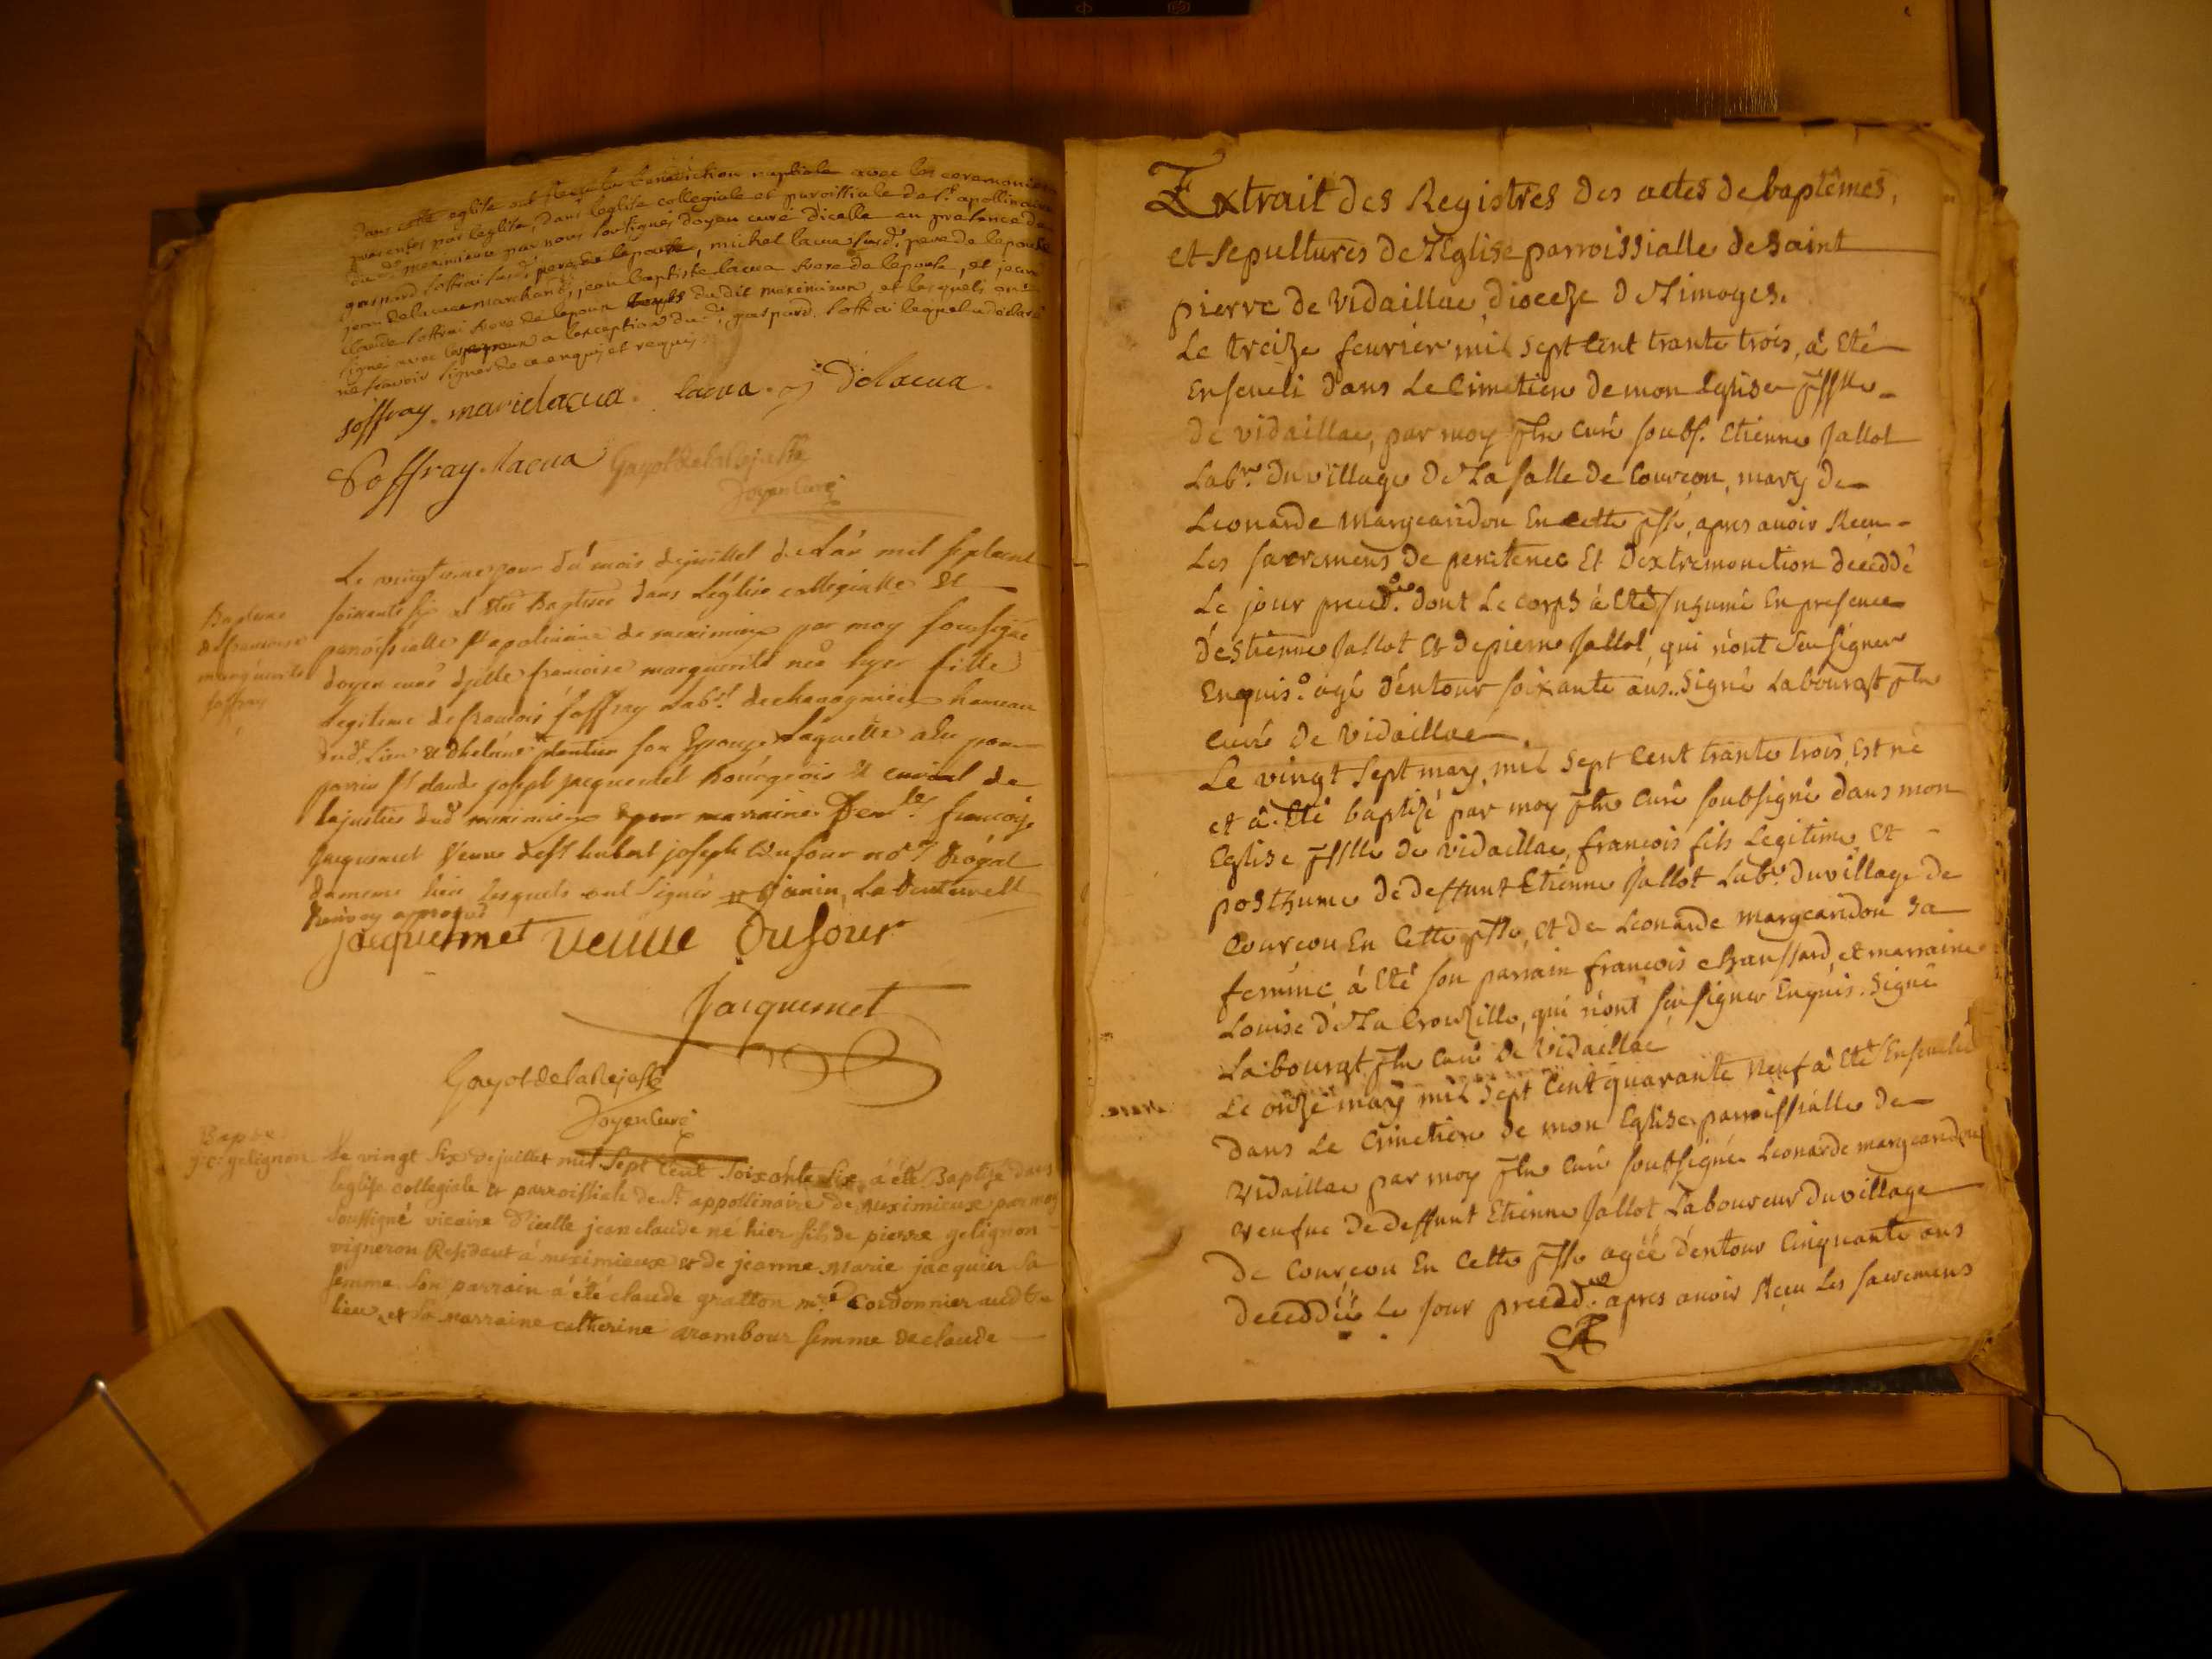 dans cette eglise ont reçu la benediction nuptiale avec les ceremonies
prescrites par leglise, dans leglise collegiale et paroissiale de st. apollinaire
dud. meximieux par nous soussigné doyen curé dicelle en presence de
gaspard soffrai susd. pere de lepoux, michel lacua susd. pere de lepouse
jean delacua marchand, jean baptiste lacua frere de lepouse, et jean
claude soffrai frere de lepoux dudit meximieux, et lesquels ont
signé avec les epoux a lexception dud. gaspard soffrai lequel a declaré
ne scavoir signer de ce enquis et requis
soffray. marie lacua. lacua. Delacua.
Soffray. lacua Gayot de la Rejasse
Doyen Curé
Le vingtieme jour du mois de juillet de l'an mil sept cent
soixante six a été Baptisée dans l'église collegialle et
Bapteme
de françoise
marguerite
soffray
paroissialle st apolinaire de meximieux par moy soussigné
doyen curé dicelle françoise marguerite née hyer fille
legitime de françois soffray Lab.r de chavagnieu hameau
dud. Lieu et d'helene son Epouze laquelle a eu pour
parrin sr claude joseph jacquemet bourgeois et curial de
la justice dud meximieux et pour marraine Dem.lle françoise
jacquemet Veuve de sr hubert joseph Dufour no.re Royal
du meme lieu lesquels ont signés
Renvoy aprouvé
jacquemet veuve Dufour
Jacquemet
Gayot de la Rejasse
Doyen Curé
Bap.me
j: c: gelignon
Le vingt six de juillet mil sept cent soixante six a été Baptisé dans
leglise collegiale et parroissiale de st. appollinaire de meximieux par moy
soussigné vicaire d'icelle jean claude né hier fils de pierre gelignon
vigneron Residant à meximieux et de jeanne marie jacquier sa
femme son parrain à été claude gratton m.e Cordonnier aud
lieu, et sa marraine catherine arambour femme de claude
Extrait des Registres des actes de baptêmes,
et sepultures de L'Eglise parroissialle de saint
pierre de Vidaillac, dioceze de Limoges.
Le treize feurier mil sept cent trante trois, a été
Enseueli dans Le Cimetiere de mon Eglise psslle
de vidaillac, par moy ptre curé soubs. Etienne Jallot
Lab.r du village de La salle de Courcon, mary de
Leonarde Margearidon En cette psse, apres auoir Receu
Les sacremens de penitence Et D'extremonction deceddé
Le jour preced. dont Le corps à été Inhumé En presence
d'Estienne Jallot Et de pierre Jallot, qui n'ont seu signer
Enquis. agé d'entour soixante ans. Signé Labourast ptre
curé de Vidaillac.
Le vingt sept mars mil sept cent trante trois, Est né
et à Eté baptizé par moy ptre curé soubsigné dans mon
Eglise psslle de vidaillac, françois fils Legitime Et
posthume de deffunt Etienne Jallot Lab.r du village de
Courcou En Cette psse, et de Leonarde margearidon sa
femme, à Eté son parrain françois chaussard, et marraine
Louise de La Crouzille, qui n'ont seu signer Enquis. Signé
Labourast ptre curé de Vidaillac
Le onze mars mil sept cent quarante neuf à Eté Enseuelie
dans Le Cimetiere de mon Eglise parroissialle de
Vidaillac par moy ptre curé soubsigné Leonarde margearidon
veufue de deffunt Etienne Jallot Laboureur du village
de Courcou En Cette psse agée d'entour Cinquante ans
deceddée Le Jour precedd. apres auoir Receu Les sacremens